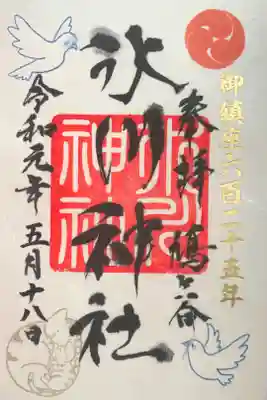 御鎮座六百二十五年
奉拝 鳩ヶ谷
氷川神社
氷川神社
令和元年五月十八日